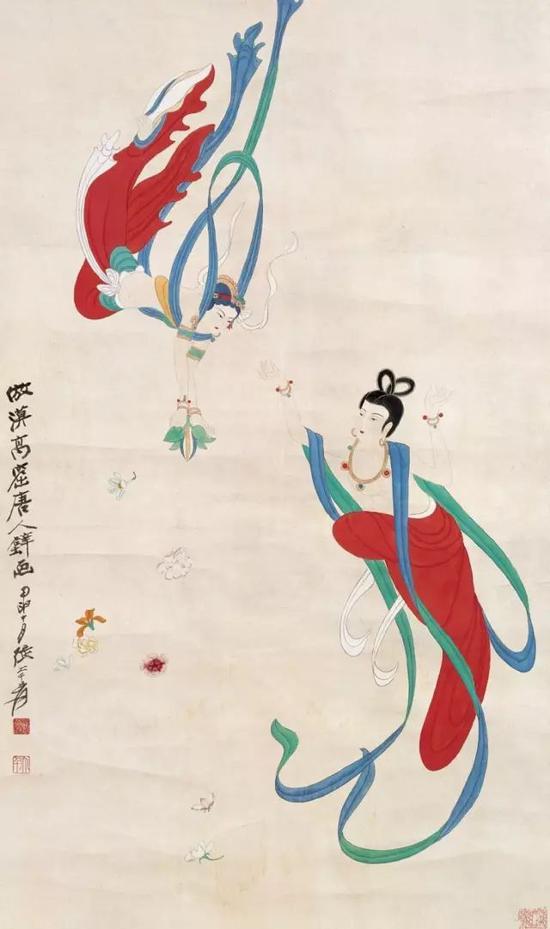 倣漠高窟唐人壁画甲申十月張大千爰